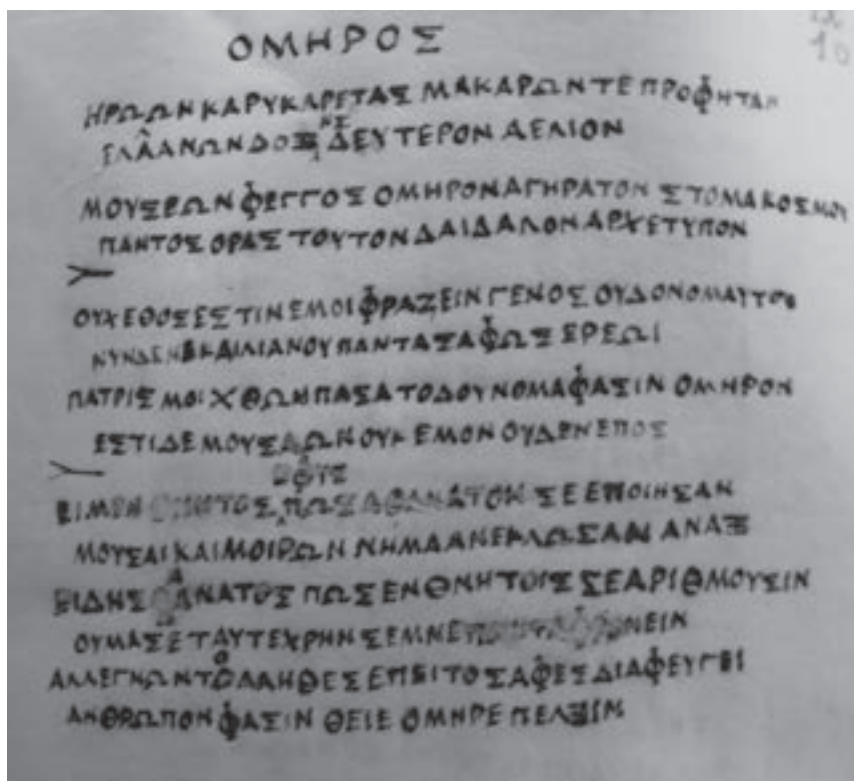 ΟΜΗΡΟΣ
10
ΗΡΩΩΝΚΑΡΥΚΑΡΕΤΑΣ ΜΑΚΑΡΩΝΤΕΠΡΟΦΗΤΑΝ
ΕΛΛΑΝΩΝΔΟΞΗΣΔΕΥΤΕΡΟΝΑΕΛΙΟΝ
ΜΟΥΣΕΩΝΦΕΓΓΟΣΟΜΗΡΟΝΑΓΗΡΑΤΟΝΣΤΟΜΑΚΟΣΜΟΥ
ΠΑΝΤΟΣΟΡΑΣΤΟΥΤΟΝΔΑΙΔΑΛΟΝΑΡΧΕΤΥΠΟΝ
ΟΥΧΕΘΟΣΕΣΤΙΝΕΜΟΙΦΡΑΖΕΙΝΓΕΝΟΣΟΥΔΟΝΟΜΑΥΤΟ
ΝΥΝΔΕΝΕΚΑΙΛΙΑΝΟΥΠΑΝΤΑΣΑΦΩΣΕΡΕΩΙ
ΠΑΤΡΙΣΜΟΙΧΘΩΝΠΑΣΑΤΟΔΟΥΝΟΜΑΦΑΣΙΝΟΜΗΡΟΝ
ΕΣΤΙΔΕΜΟΥΣΑΩΝΟΥΚΕΜΟΝΟΥΔΕΝΕΠΟΣ
ΠΩΣΑΘΑΝΑΤΟΝΣΕΕΠΟΙΗΣΑΝ
ΜΟΥΣΑΙΚΑΙΜΟΙΡΩΝΝΗΜΑΑΝΕΚΛΩΣΑΝΑΝΑΞ
ΕΙΔΗΣΑΘΑΝΑΤΟΣΠΩΣΕΝΘΝΗΤΟΙΣΣΕΑΡΙΘΜΟΥΣΙΝ
ΟΥΜΑΣΕΤΑΥΤΕΧΡΗΝΣΕΜΝΕ
ΑΛΛΕΓΝΩΝΤΟΑΛΗΘΕΣΕΠΕΙΤΟΣΑΦΕΣΔΙΑΦΕΥΓΕΙ
ΑΝΘΡΩΠΟΝΦΑΣΙΝΘΕΙΕΟΜΗΡΕΠΕΛΕΙΝ